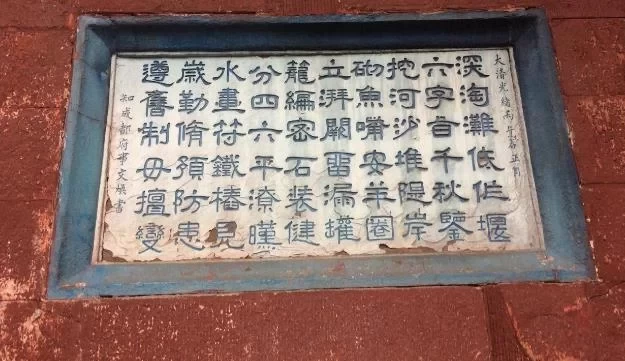 大清光緒丙午年
深淘灘低作堰
六字旨千秋鑒
挖河沙堆隄岸
砌魚嘴安羊圈
立湃闕畱漏罐
籠編密石裝健
分四六平潦暵
水畫符鐵樁見
歲勤修預防患
遵舊制毋擅變
知成都府事文煥書